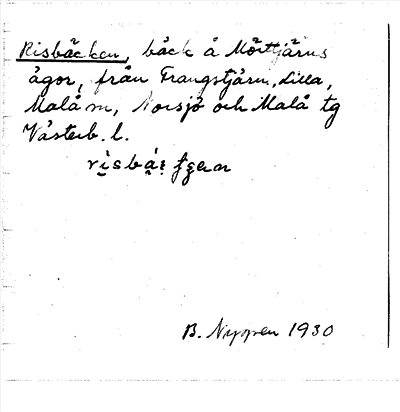 Risbäcken, bäck å Mörttjärns
ägor, från Frangstjärn, Lilla,
Malå sn, Norsjö och Malå tg
Västerb. l.
B. Nyqpen 1930